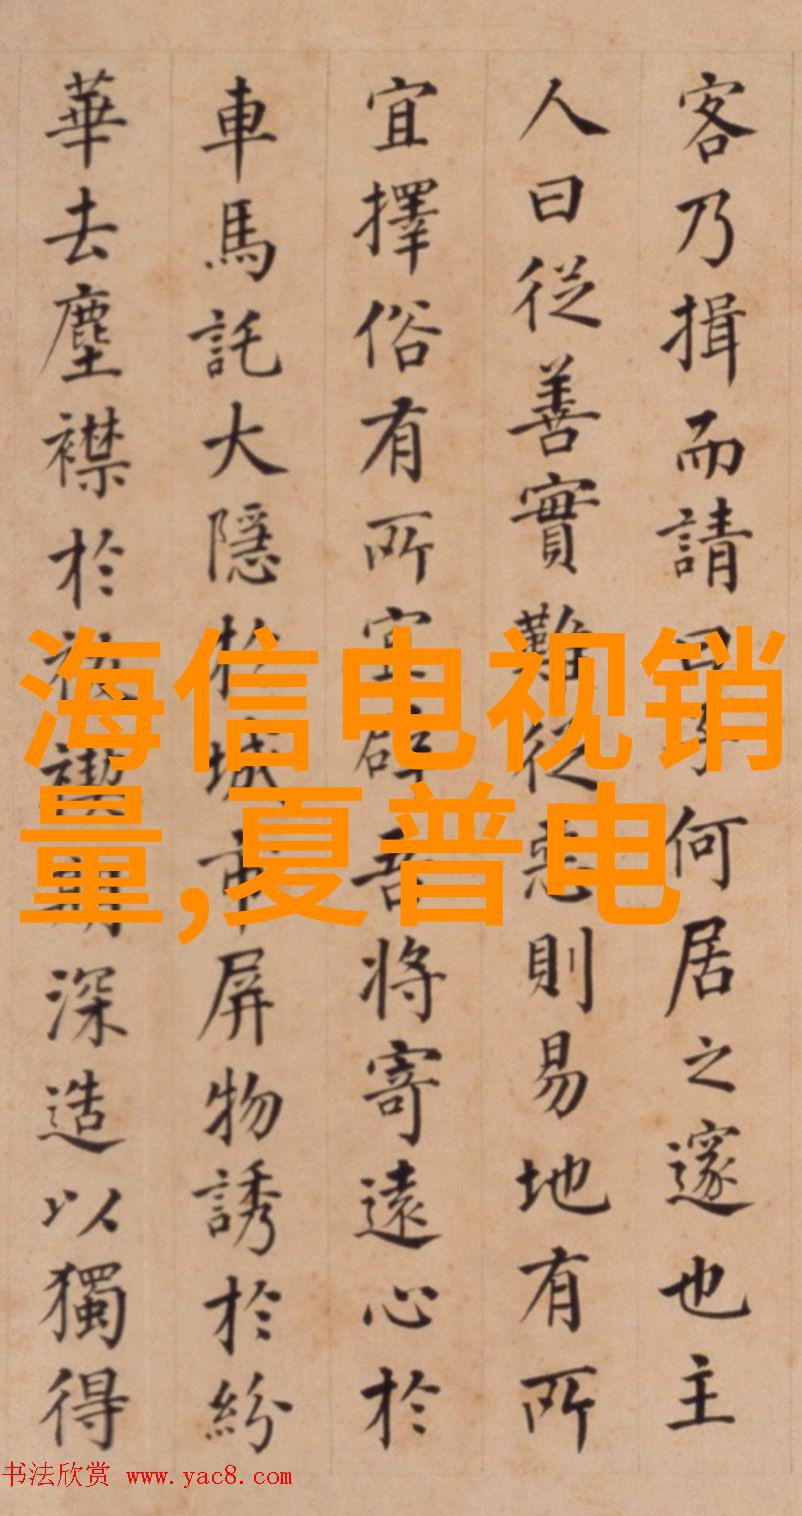 客乃揖而請曰何居之邃也主
人曰從善實難從惡則易地有所
宜擇俗有所宜吾將寄遠心於
車馬託大隱於城市屏物誘於紛
華去塵襟於深造以獨得
海信电视销
量,夏普电
书法欣赏 www.yac8.com